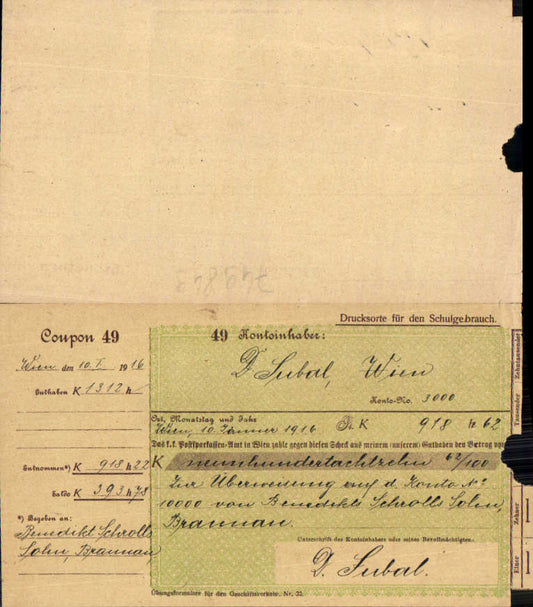 749842
Drucksorte für den Schulgebrauch.
Coupon 49
Wien den 10. I. 1916
Guthaben K 1312 h
Entnommen*) K 918 h 22
Saldo K 393 h 78
*) Begeben an:
Benedikt Schrolls
Sohn, Braunau,
49 Kontoinhaber:
D. Subal, Wien
Konto-No. 3000
Ort, Monatstag und Jahr
Wien, 10. Jänner 1916 K 918 h 62
Das k.k. Postsparkassen-Amt in Wien zahle gegen diesen Scheck aus meinem (unserem) Guthaben den Betrag von
K neunhundertachtzehn 62/100
Zur Überweisung auf d. Konto No
10000 von Benedikts Schrolls Sohn,
Braunau.
Unterschrift des Kontoinhabers oder seines Bevollmächtigten.
D. Subal.
Übungsformulare für den Geschäftsverkehr. Nr. 32.
Zehntausender
Tausender
Zehner
Einer